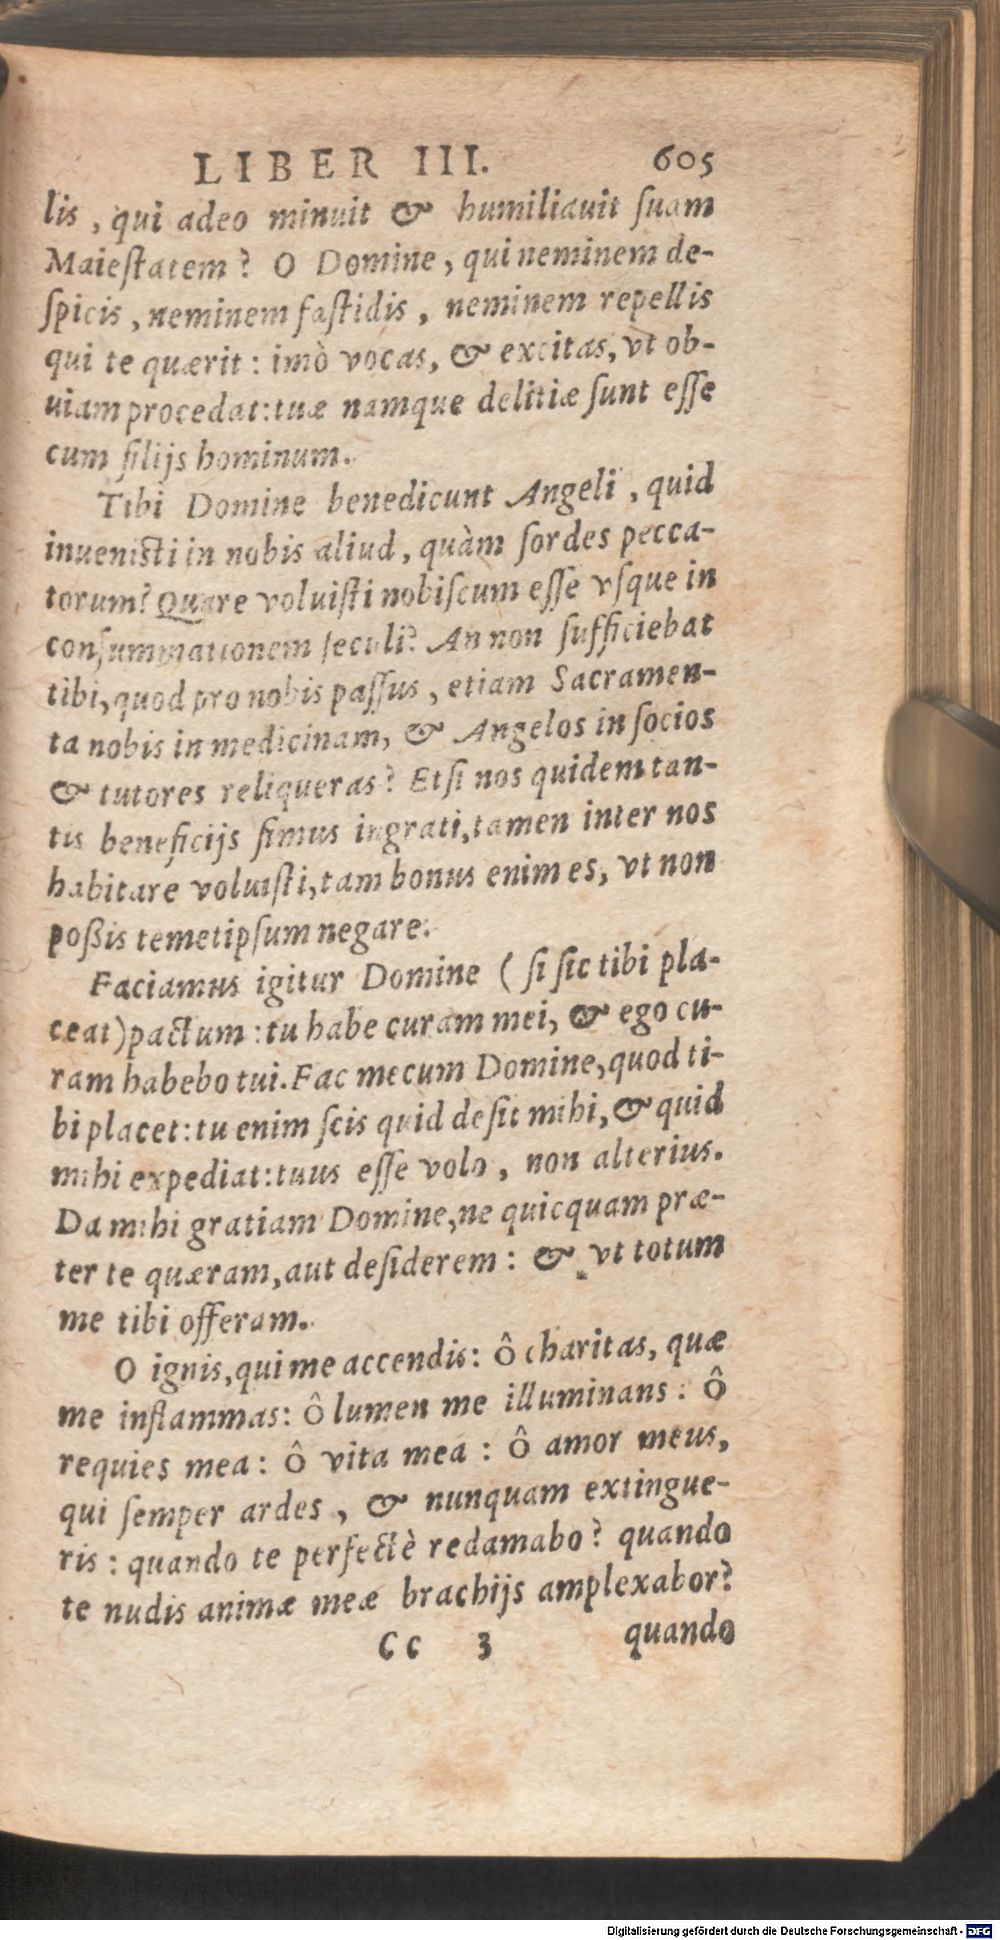 LIBER III. 605
lis, qui adeo minuit & humiliauit ſuam
Maieſtatem? O Domine, qui neminem de-
ſpicis, neminem faſtidis, neminem repellis
qui te quærit: imò vocas, & excitas, vt ob-
uiam procedat: tuæ namque delitiæ ſunt eſſe
cum filijs hominum.
Tibi Domine benedicunt Angeli, quid
inueniſti in nobis aliud, quàm ſordes pecca-
torum? Quare voluiſti nobiſcum eſſe vſque in
conſummationem ſeculi? An non ſufficiebat
tibi, quod pro nobis paſſus, etiam Sacramen-
ta nobis in medicinam, & Angelos in ſocios
& tutores reliqueras? Etſi nos quidem tan-
tis beneficijs ſimus ingrati, tamen inter nos
habitare voluiſti, tam bonus enim es, vt non
poßis temetipſum negare.
Faciamus igitur Domine (ſi ſic tibi pla-
ceat) pactum: tu habe curam mei, & ego cu-
ram habebo tui. Fac mecum Domine, quod ti-
bi placet: tu enim ſcis quid deſit mihi, & quid
mihi expediat: tuus eſſe volo, non alterius.
Da mihi gratiam Domine, ne quicquam præ-
ter te quæram, aut deſiderem: & vt totum
me tibi offeram.
O ignis, qui me accendis: ô charitas, quæ
me inflammas: ô lumen me illuminans: ô
requies mea: ô vita mea: ô amor meus,
qui ſemper ardes, & nunquam extingue-
ris: quando te perfectè redamabo? quando
te nudis animæ meæ brachijs amplexabor?
Cc 3 quando
Digitalisierung gefördert durch die Deutsche Forschungsgemeinschaft - DFG